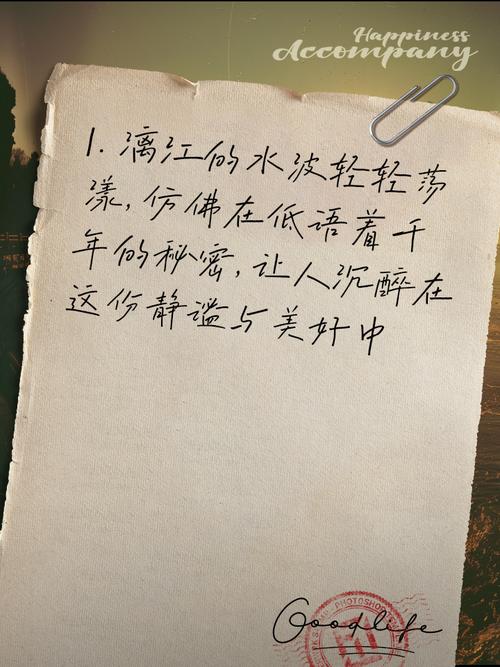 Happiness
Accompany
1. 漓江的水波轻轻荡
漾，仿佛在低语着千
年的秘密，让人沉醉在
这份静谧与美好中
PHOTOSHOP
Goodlife